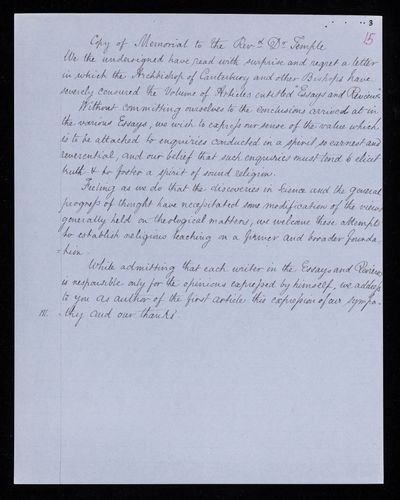 3
15
Copy of Memorial to the Revd. Dr. Temple
We the undersigned have read with surprise and regret a letter
in which the Archbishop of Canterbury and other Bishops have
severely censured the Volume of Articles entitled "Essays and Reviews".
Without committing ourselves to the conclusions arrived at in
the various Essays, we wish to express our sense of the value which
is to be attached to enquiries conducted in a spirit so earnest and
reverential, and our belief that such enquiries must tend to elicit
truth & to foster a spirit of sound religion.
Feeling as we do that the discoveries in Science and the general
progress of thought have necessitated some modification of the views
generally held on theological matters, we welcome these attempts
to establish religious teaching on a firmer and broader founda-
=tion.
While admitting that each writer in the Essays and Reviews
is responsible only for the opinions expressed by himself, we address
to you as author of the first article this expression of our sympa-
-thy and our thanks